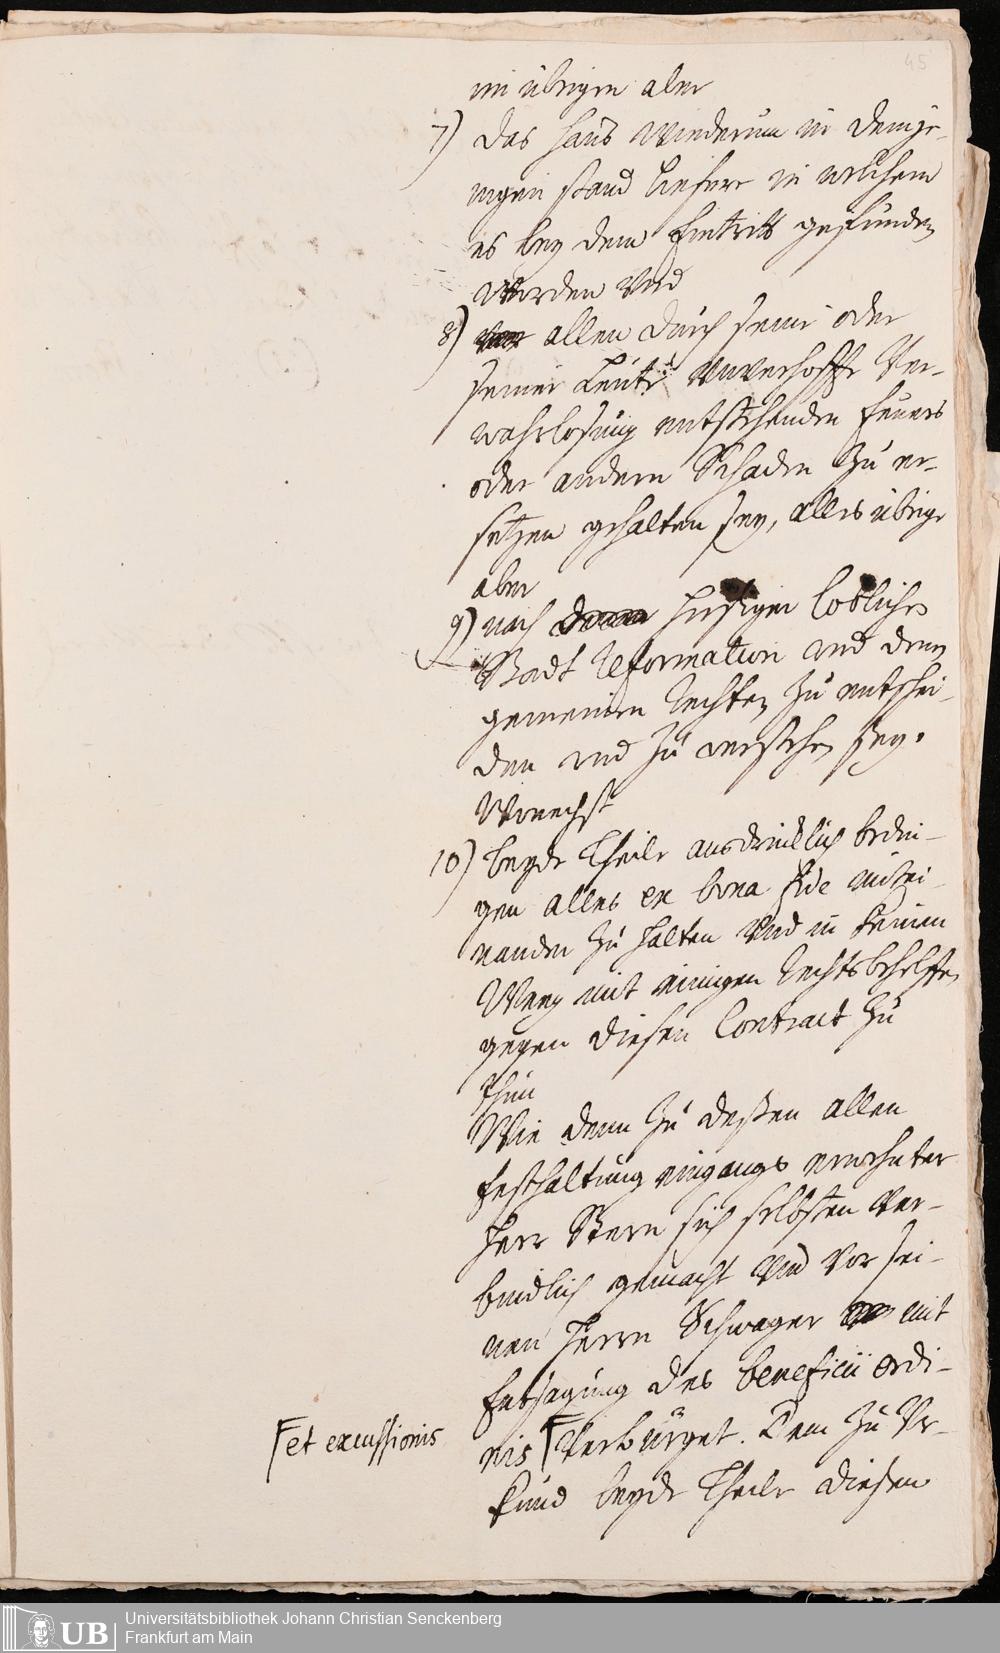 45
im übrigen aber
7) das Haus wiederum in demje-
nigen stand liefere in welchem
es bey dem Eintritt gefunden
worden und
8) allen durch seine oder
seiner Leute unverhoffte Ver-
wahrlosung entstehenden Feuers
oder andern Schaden zu er-
setzen gehalten sey, alles übrige
aber
9) nach hiesigen loblichen
Stadt Reformation und denen
gemeinen Rechten zu entschei-
den und zu verstehen sey.
Wonechst
10) beyde Theile ausdrücklich bedin-
gen alles ex bona fide mitei-
nander zu halten und in keinen
Weeg mit einigen Rechtsbehelffen
gegen diesen Contract zu
thun
Wie denn zu deßen allen
festhaltung eingangs erwehnter
Herr Stern sich selbsten ver-
bindlich gemacht und vor sei-
nen Herrn Schwager mit
Entsagung des beneficii ordi-
et excussionis
nis verbürget. Dem zu Ur-
kund beyde Theile diesen
UB Universitätsbibliothek Johann Christian Senckenberg
Frankfurt am Main